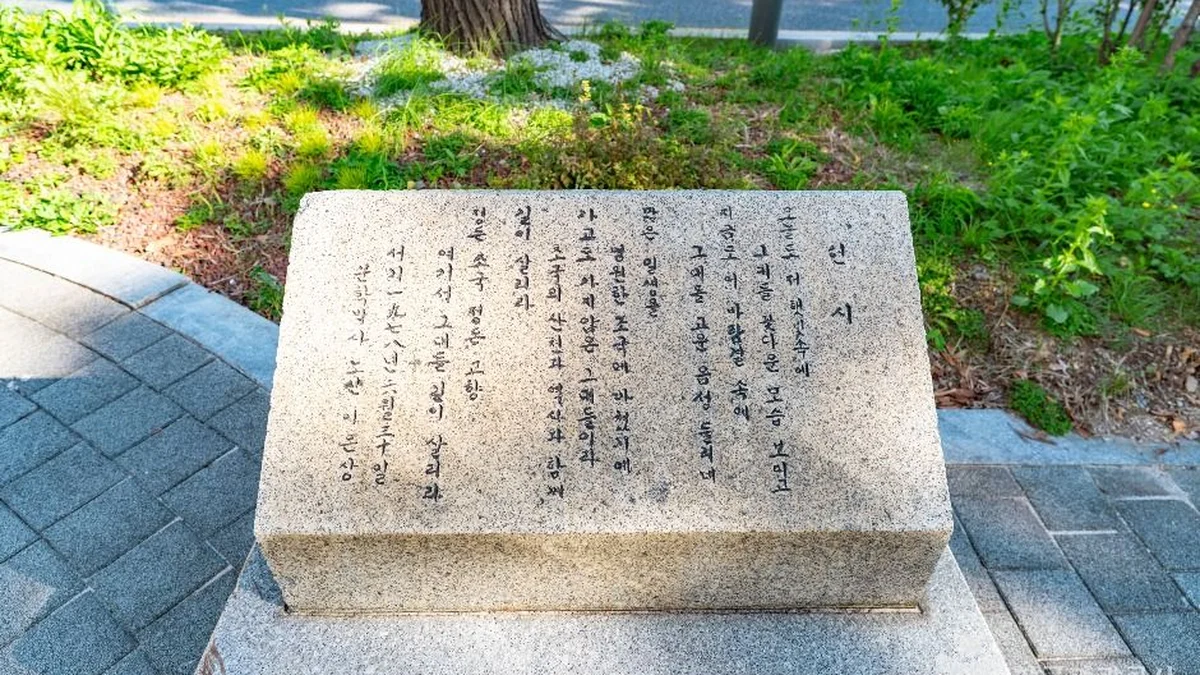 헌 시
오늘도 저 햇빛속에
그대들 꽃다운 모습 보이고
지금도 이 바람결 속에
그대들 고운 음성 들리네
짧은 일생을
영원한 조국에 바쳤지메
가고도 가지않은 그대들이라
조국의 산천과 역사와 함께
길이 살리라
정든 조국 정든 고향
여기서 그대들 길이 살리라
서기一九七八년六월三十일
문학박사 노산 이은상